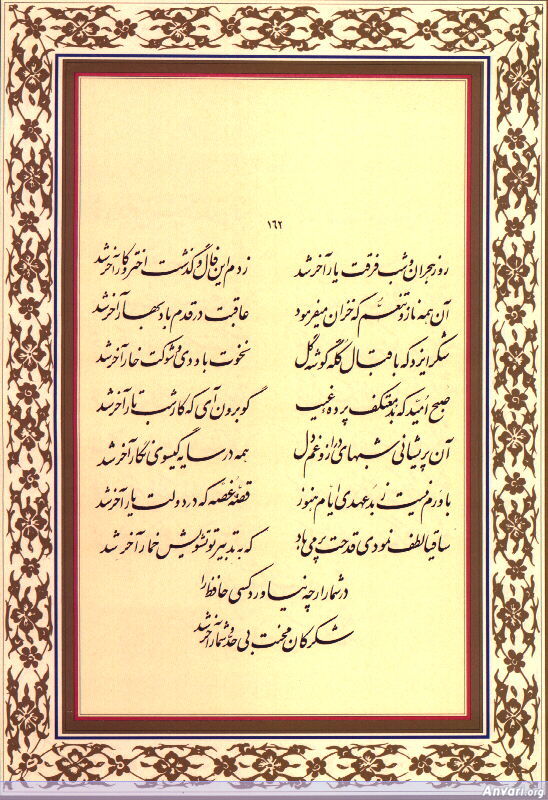 ۱۶۲
روز هجران و شب فرقت یار آخر شد زدم این فال و گذشت اختر و کار آخر شد
آن همه ناز و تنعم که خزان میفرمود عاقبت در قدم باد بهار آخر شد
شکر ایزد که باقبال کله گوشه گل نخوت باد دی و شوکت خار آخر شد
صبح امید که بد معتکف پرده غیب گو برون آی که کار شب تار آخر شد
آن پریشانی شبهای دراز و غم دل همه در سایه گیسوی نگار آخر شد
باورم نیست ز بدعهدی ایام هنوز قصه غصه که در دولت یار آخر شد
ساقیا لطف نمودی قدحت پر می باد که به تدبیر تو تشویش خمار آخر شد
در شمار ار چه نیاورد کسی حافظ را
شکر کان محنت بی حد و شمار آخر شد
Anvari.org